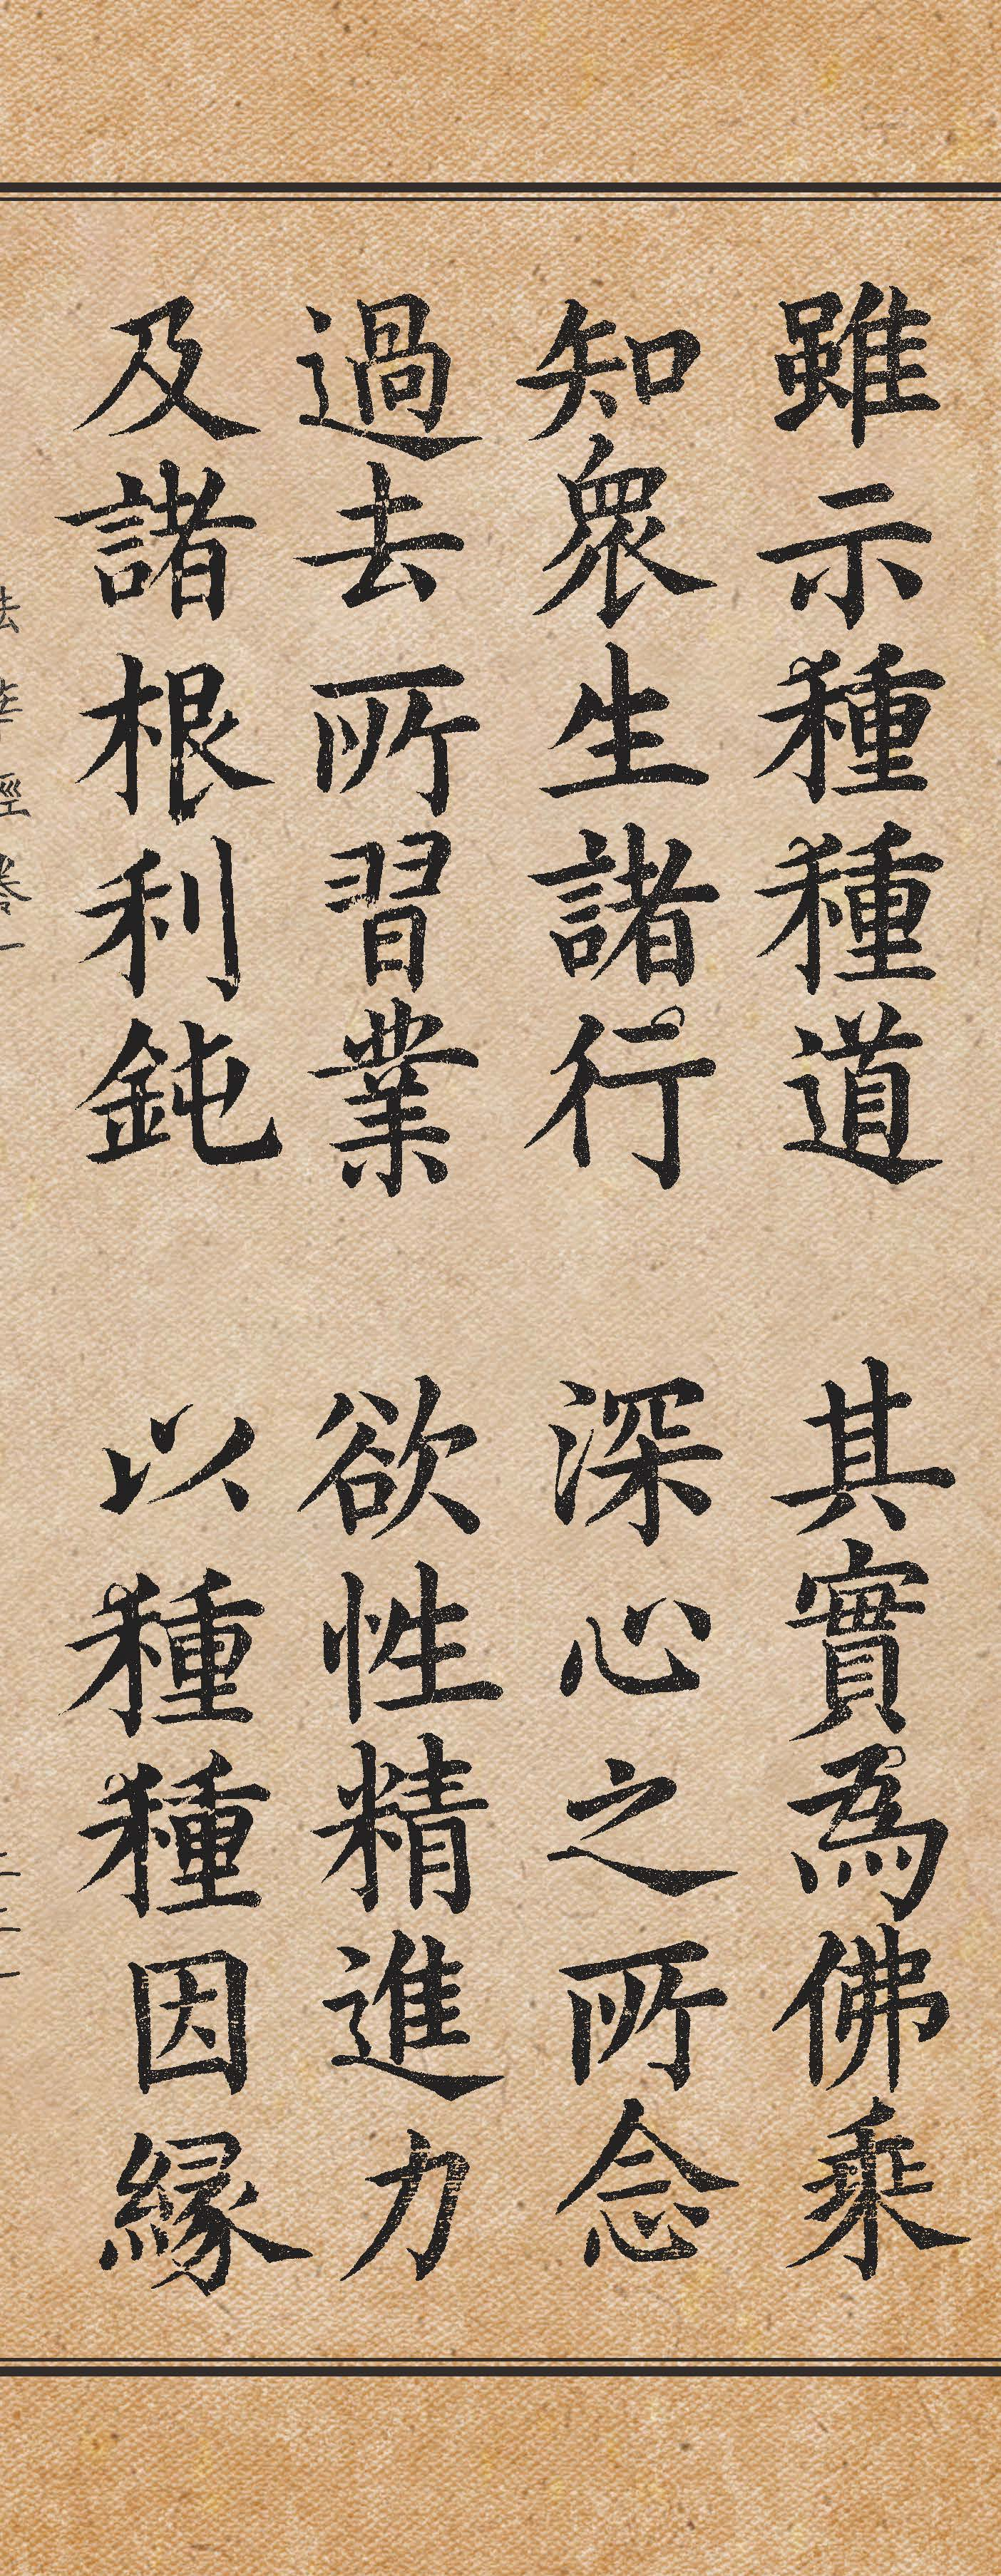 雖示種種道　其實爲佛乘
知衆生諸行　深心之所念
過去所習業　欲性精進力
及諸根利鈍　以種種因縁
法華經卷一